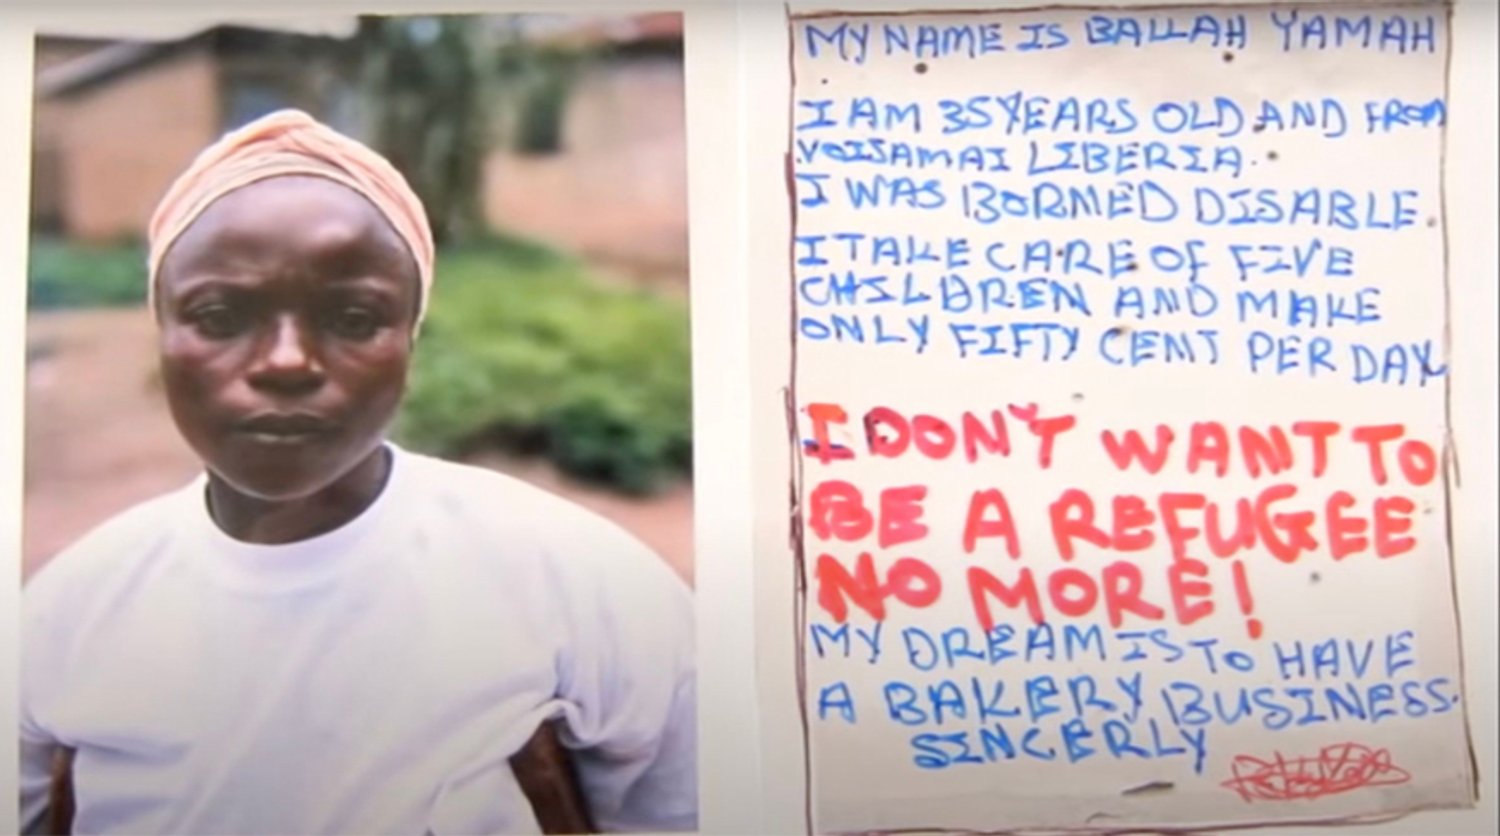 MY NAME IS BALLAH YAMAH
I AM 35 YEARS OLD AND FROM
VOISAMAI LIBERIA.
I WAS BORMED DISABLE.
I TAKE CARE OF FIVE
CHILDREN AND MAKE
ONLY FIFTY CENT PER DAY
I DON'T WANT TO
BE A REFUGEE
NO MORE!
MY DREAM IS TO HAVE
A BAKERY BUSINESS.
SINCERLY